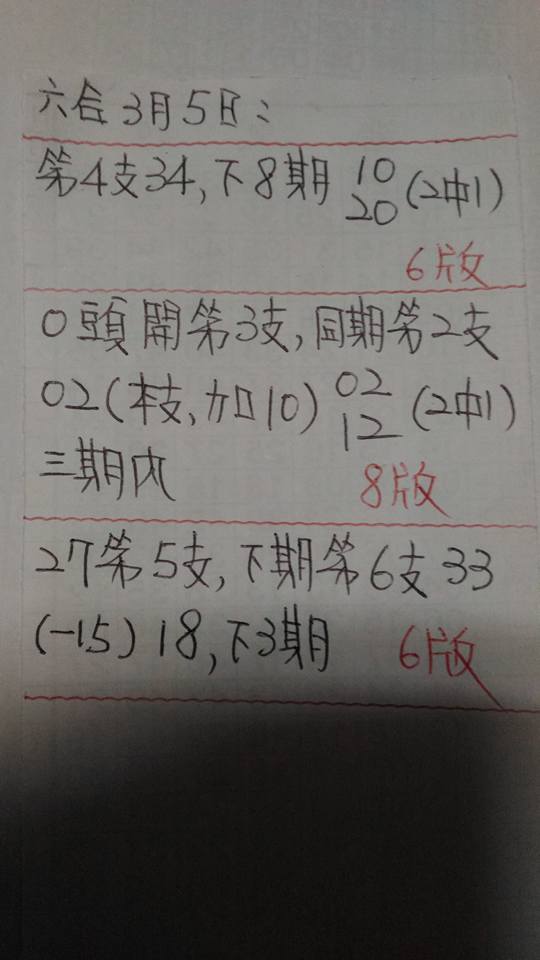 六合3月5日:
第4支34,下8期 10 20 (2中1)
6版
0頭開第3支,同期第2支
02(本支,加10) 02 12 (2中1)
三期內 8版
27第5支,下期第6支33
(-15) 18,下3期 6版